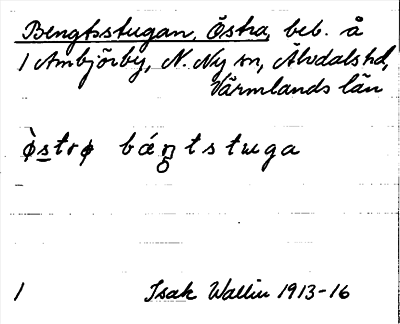 Bengtsstugan, Östra, beb. å
1 Ambjörby, N. Ny sn, Älvdals hd,
Värmlands län
ø̀strø báŋtstuga
1 Isak Wallin 1913-16